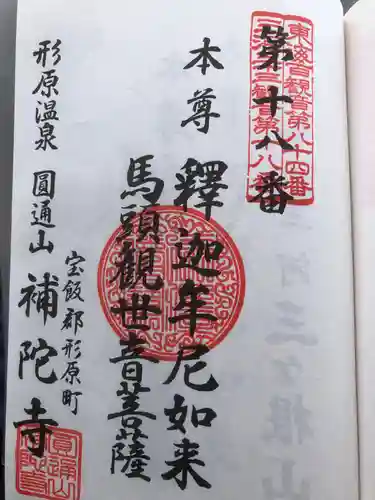 東海百観音第八十四番
三河三十三観音第十八番
第十八番
本尊 釋迦牟尼如来
馬頭観世音菩薩
宝飯郡形原町
形原温泉 圓通山 補陀寺
圓通山